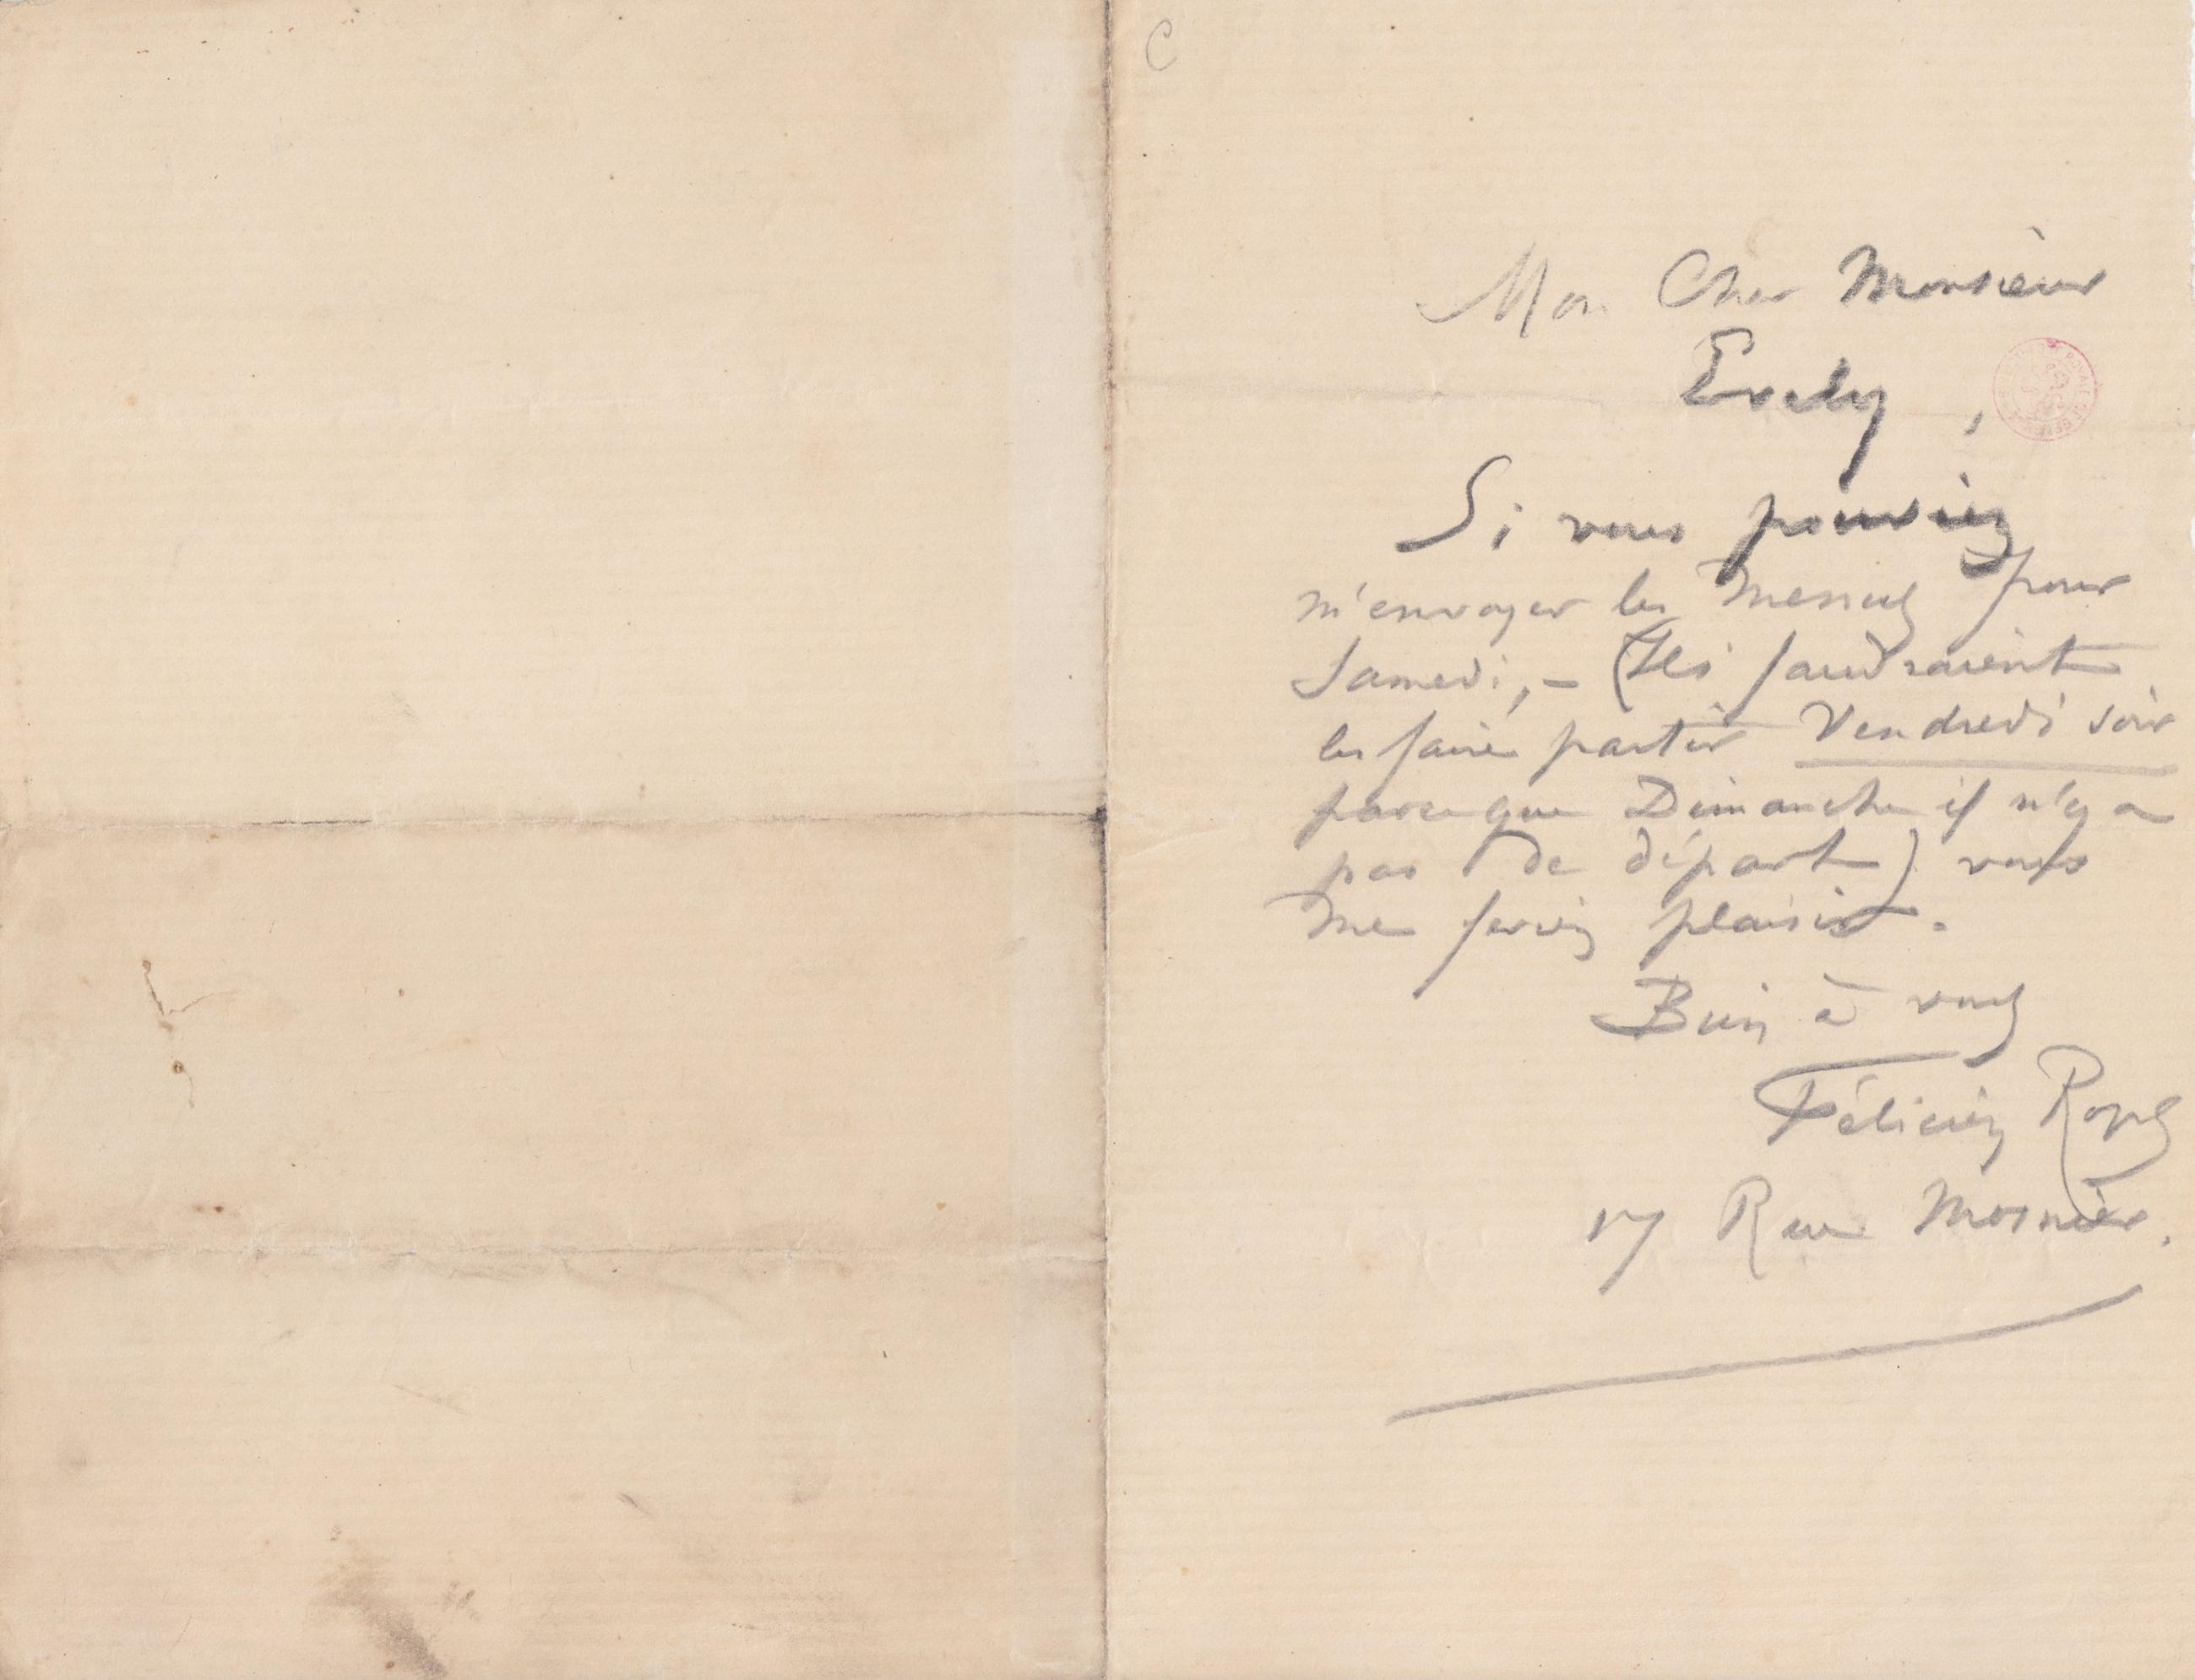 C
Mon Cher Monsieur
Evely,
Si vous pouviez
m'envoyer les Menus pour
Samedi, – (Ils faudraient
les faire partir Vendredi soir
parceque Dimanche il n'y a
pas de départ) vous
me feriez plaisir.
Bien à vous
Félicien Rops
17 Rue Mosnier.